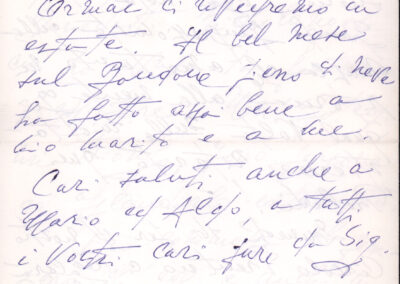 Ormai ci rivedremo in
estate. Il bel mese
sul Bondone pieno di neve
ha fatto assai bene a
mio marito e a me.
Cari saluti anche a
Mario ed Aldo, a tutti
i Vostri cari pure da Sig.